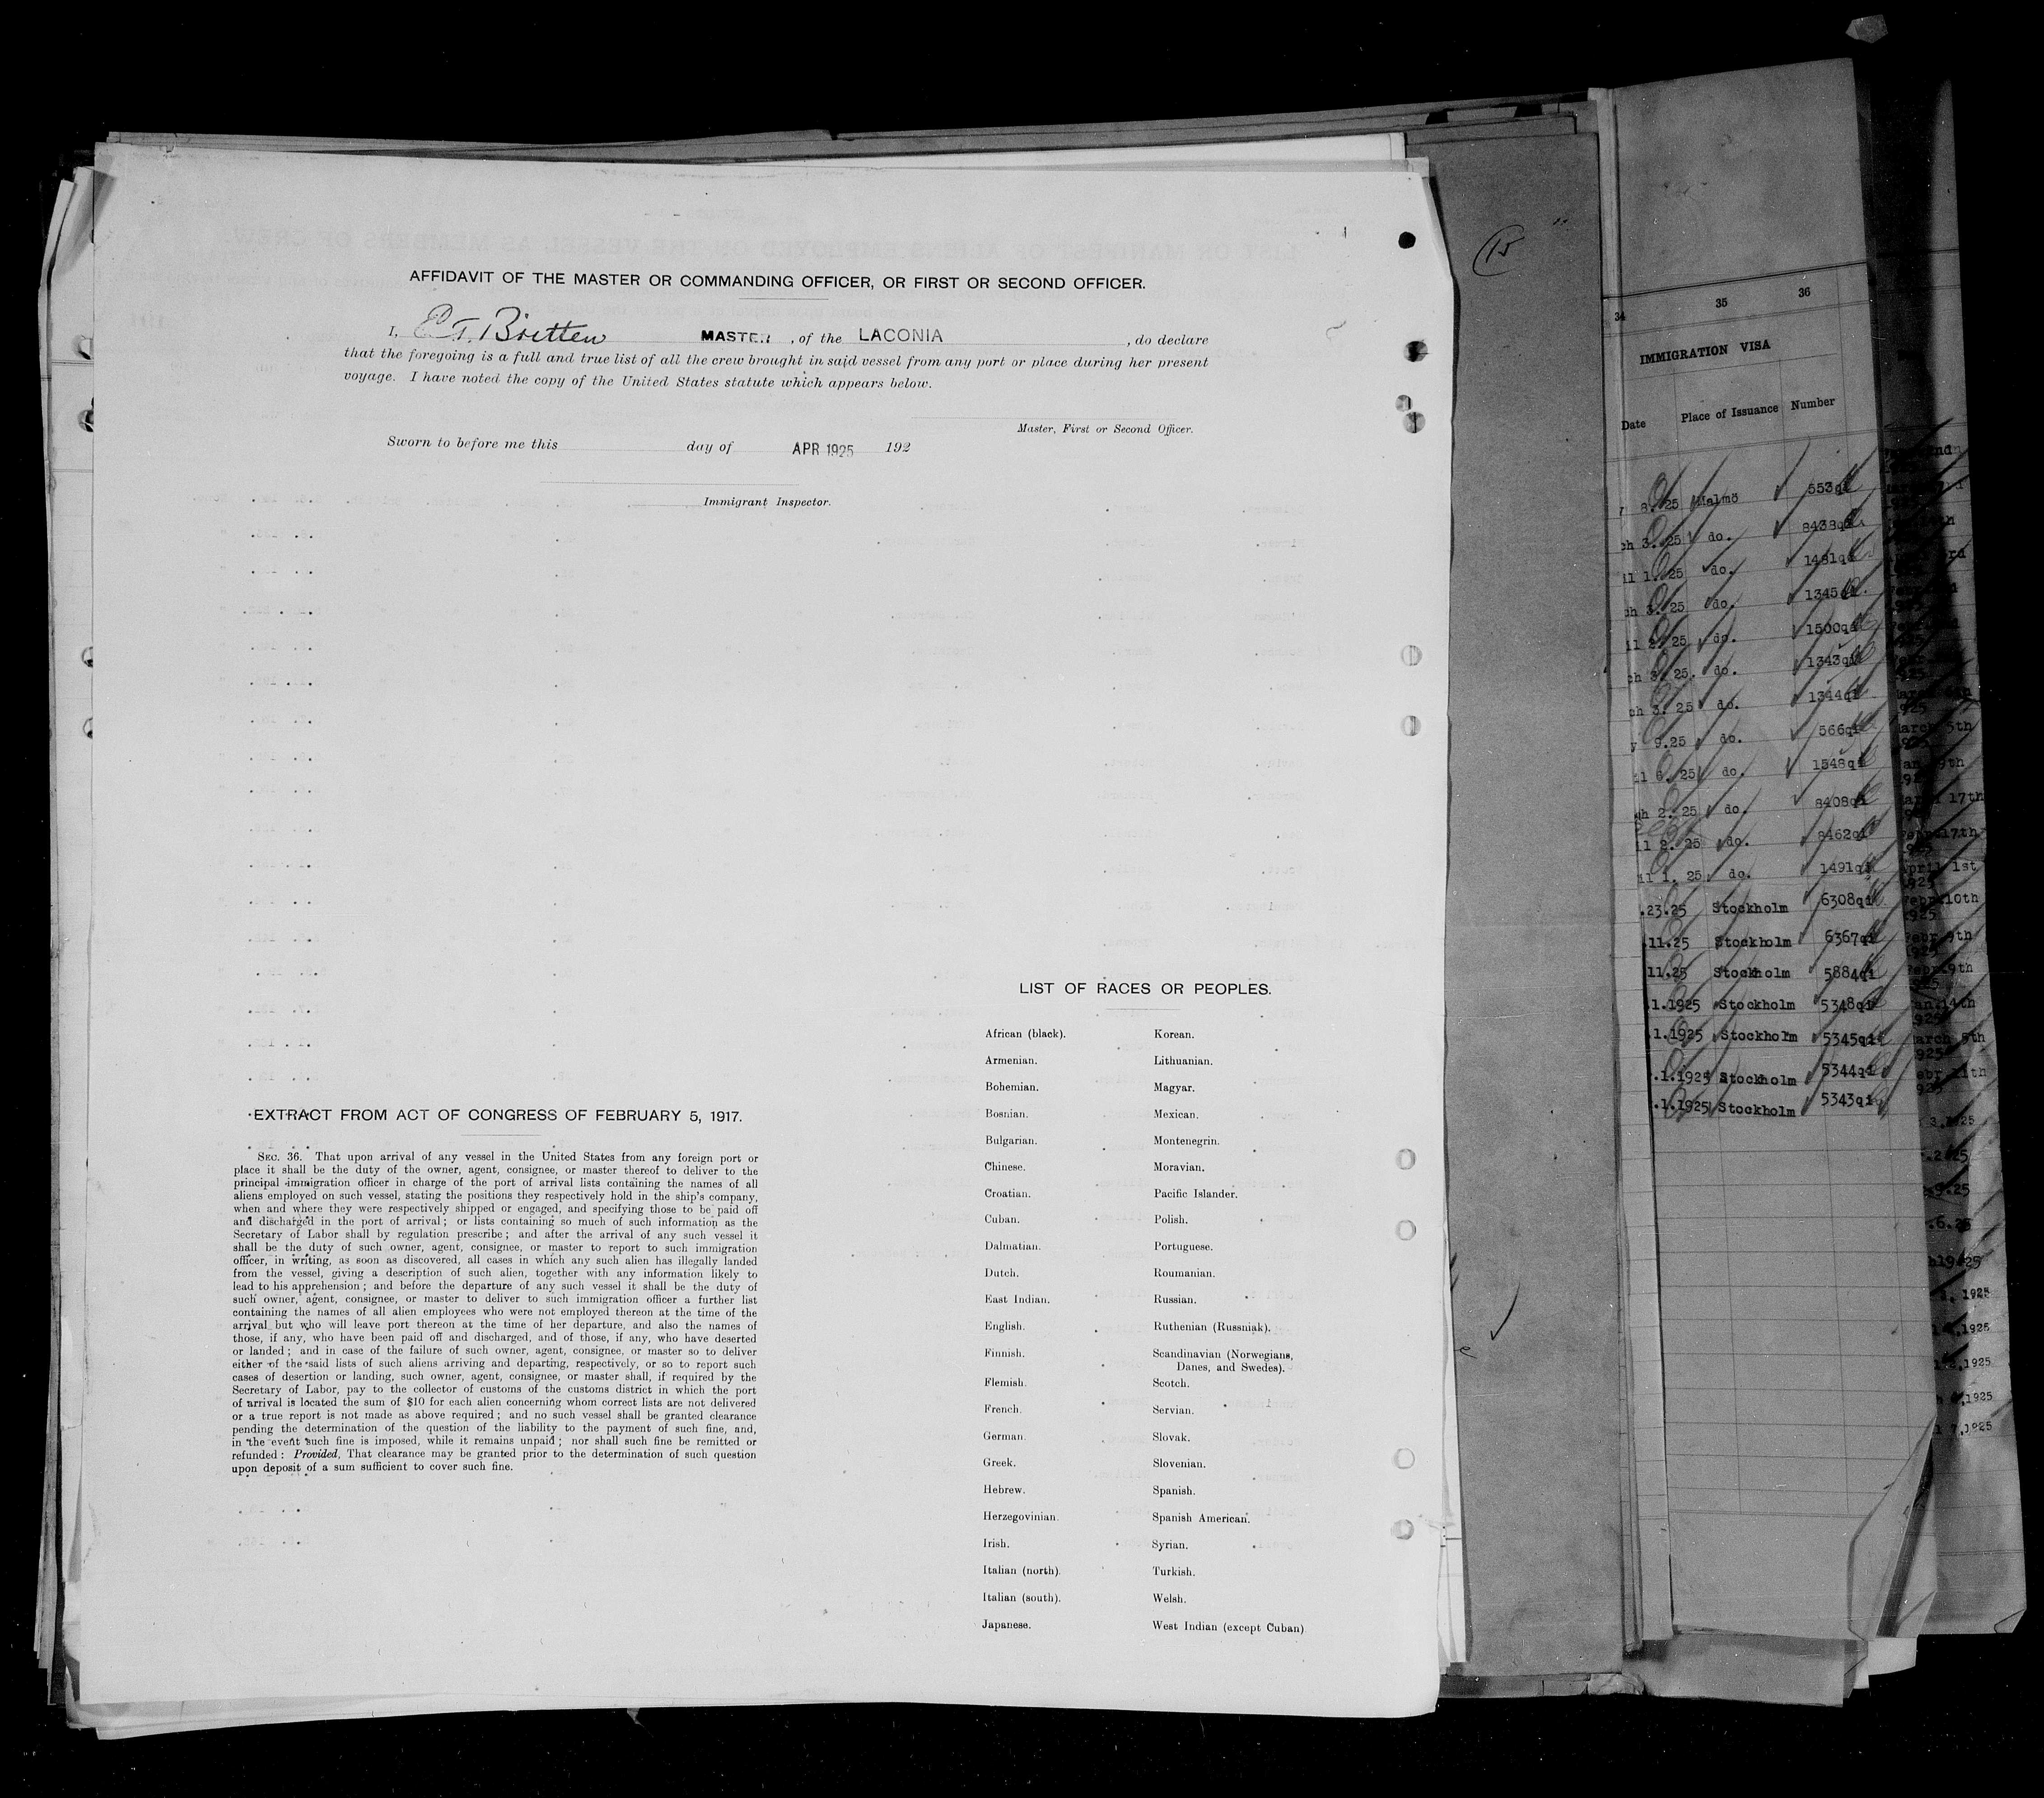 AFFIDAVIT OF THE MASTER OR COMMANDING OFFICER, OR FIRST OR SECOND OFFICER.
I, E.T. Britten MASTER, of the LACONIA, do declare
that the foregoing is a full and true list of all the crew brought in said vessel from any port or place during her present
voyage. I have noted the copy of the United States statute which appears below.
Master, First or Second Officer.
Sworn to before me this day of APR 1925 192
Immigrant Inspector.
EXTRACT FROM ACT OF CONGRESS OF FEBRUARY 5, 1917.
SEC. 36. That upon arrival of any vessel in the United States from any foreign port or
place it shall be the duty of the owner, agent, consignee, or master thereof to deliver to the
principal immigration officer in charge of the port of arrival lists containing the names of all
aliens employed on such vessel, stating the positions they respectively hold in the ship's company,
when and where they were respectively shipped or engaged, and specifying those to be paid off
and discharged in the port of arrival; or lists containing so much of such information as the
Secretary of Labor shall by regulation prescribe; and after the arrival of any such vessel it
shall be the duty of such owner, agent, consignee, or master to report to such immigration
officer, in writing, as soon as discovered, all cases in which any such alien has illegally landed
from the vessel, giving a description of such alien, together with any information likely to
lead to his apprehension; and before the departure of any such vessel it shall be the duty of
such owner, agent, consignee, or master to deliver to such immigration officer a further list
containing the names of all alien employees who were not employed thereon at the time of the
arrival but who will leave port thereon at the time of her departure, and also the names of
those, if any, who have been paid off and discharged, and of those, if any, who have deserted
or landed; and in case of the failure of such owner, agent, consignee, or master so to deliver
either of the said lists of such aliens arriving and departing, respectively, or so to report such
cases of desertion or landing, such owner, agent, consignee, or master shall, if required by the
Secretary of Labor, pay to the collector of customs of the customs district in which the port
of arrival is located the sum of $10 for each alien concerning whom correct lists are not delivered
or a true report is not made as above required; and no such vessel shall be granted clearance
pending the determination of the question of the liability to the payment of such fine, and,
in the event such fine is imposed, while it remains unpaid; nor shall such fine be remitted or
refunded: Provided, That clearance may be granted prior to the determination of such question
upon deposit of a sum sufficient to cover such fine.
LIST OF RACES OR PEOPLES.
African (black). Korean.
Armenian. Lithuanian.
Bohemian. Magyar.
Bosnian. Mexican.
Bulgarian. Montenegrin.
Chinese. Moravian.
Croatian. Pacific Islander.
Cuban. Polish.
Dalmatian. Portuguese.
Dutch. Roumanian.
East Indian. Russian.
English. Ruthenian (Russniak).
Finnish. Scandinavian (Norwegians,
Danes, and Swedes).
Flemish. Scotch.
French. Servian.
German. Slovak.
Greek. Slovenian.
Hebrew. Spanish.
Herzegovinian. Spanish American.
Irish. Syrian.
Italian (north). Turkish.
Italian (south). Welsh.
Japanese. West Indian (except Cuban)
15
34 35 36
IMMIGRATION VISA
Date Place of Issuance Number
8.25 Malmö 553qi
3.25 do. 8438qi
1.25 do. 1481qi
3.25 do. 1345qi
2.25 do. 1500qi
3.25. do. 1343qi
3.25 do. 1344qi
9.25 do. 566qi
6.25 do. 1548qi
2.25 do. 8408qi
2.25 do. 8462qi
1.25 do. 1491qi
.23.25 Stockholm 6308qi
.11.25 Stockholm 6367qi
11.25 Stockholm 5884qi
.1.1925 Stockholm 5348qi
.1.1925 Stockholm 5345qi
.1.1925 Stockholm 5344qi
.1.1925 Stockholm 5343qi